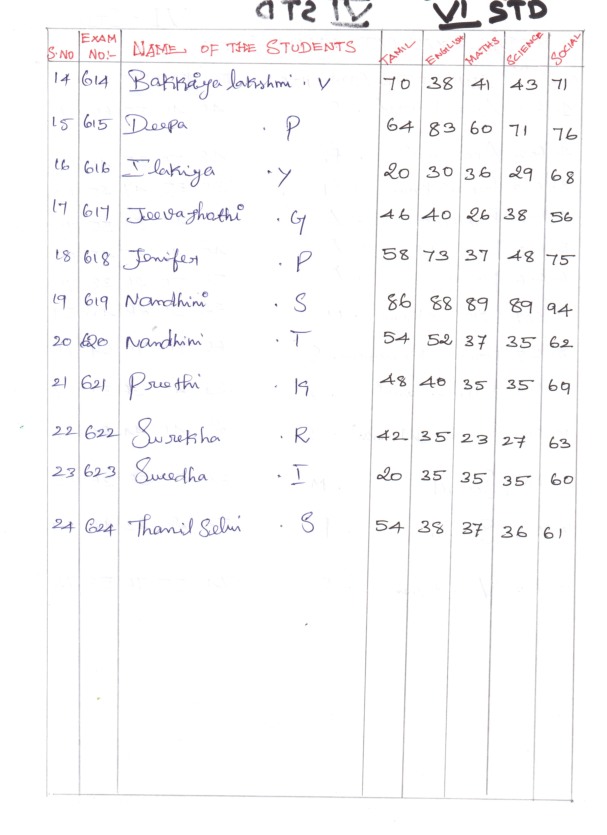 VI STD
S.NO EXAM NO:- NAME OF THE STUDENTS TAMIL ENGLISH MATHS SCIENCE SOCIAL
14 614 Bakkiya lakshmi . V 70 38 41 43 71
15 615 Deepa . P 64 83 60 71 76
16 616 Ilakiya . Y 20 30 36 29 68
17 617 . G 46 40 26 38 56
18 618 Jenifer . P 58 73 37 48 75
19 619 Nandhini . S 86 88 89 89 94
20 620 Nandhini . T 54 52 37 35 62
21 621 Preethi . K 48 40 35 35 69
22 622 Surekha . R 42 35 23 27 63
23 623 . I 20 35 35 35 60
24 624 Thamil Selvi . S 54 38 37 36 61